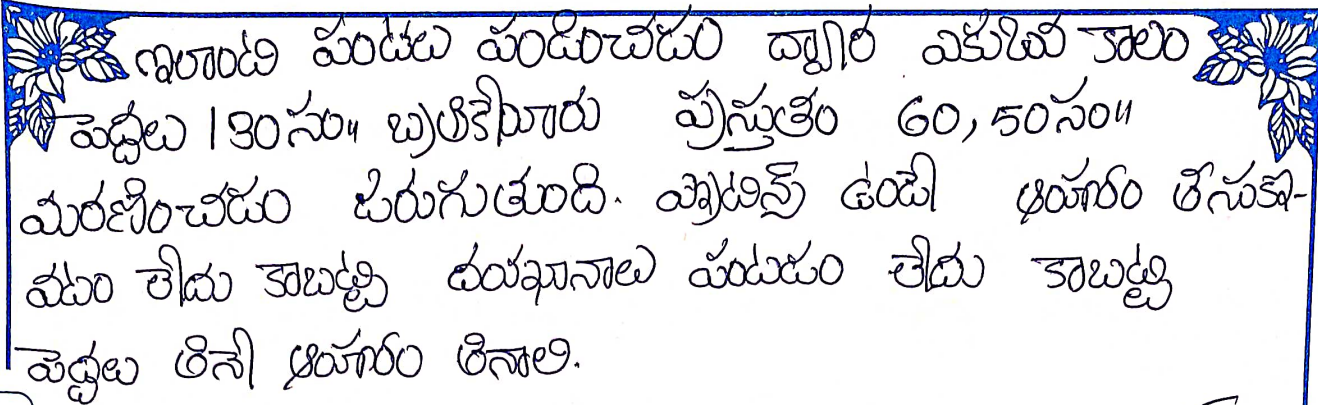 ఇలాంటి పంటలు పండించడం ద్వార ఎకుఒవ కాలం
పెద్దలు 130సం॥ బ్రతికేవారు ప్రస్తుతం 60, 50సం॥
మరణించడం జరుగుతుంది. ప్రొటిన్స్ ఉండే ఆహారం తీసుకో-
వటం లేదు కాబట్టి దయఖానాలు పంటడం లేదు కాబట్టి
పెద్దలు తినే ఆహారం తినాలి.